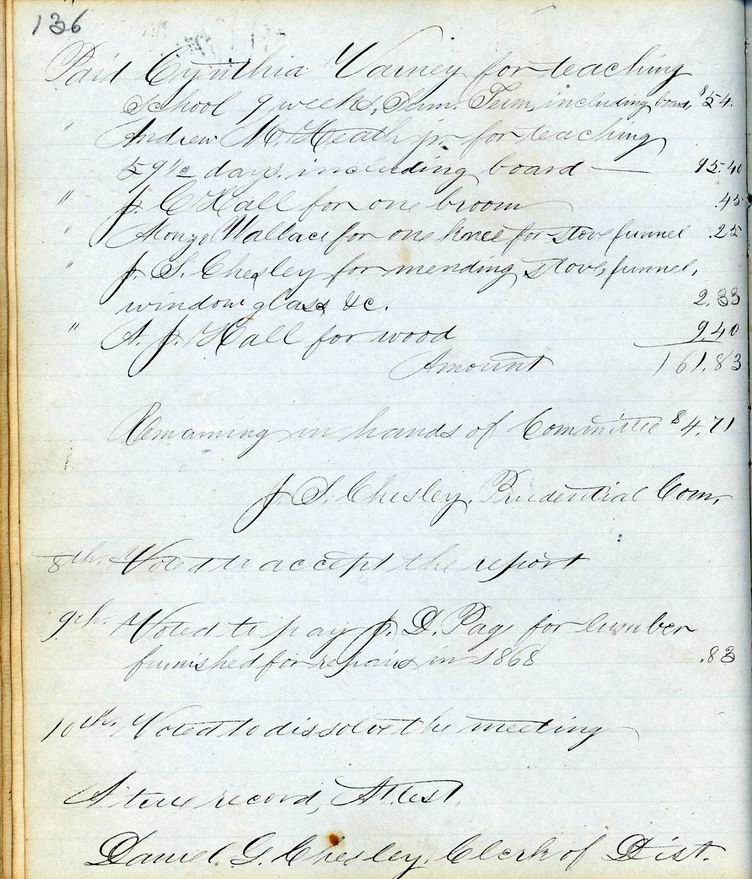 136
Paid Cynthia Varney for teaching
School 9 weeks, Sum. Term, including board, $54.
" Andrew M. Heath jr. for teaching
59 1/2 days, including board — 95.40
" J. C. Hall for one broom .45
" Alonzo Wallace for one knee for stove funnel .25
" J. S. Chesley for mending stove, funnel,
window glass &c. 2.33
" A. J. Hall for wood 9.40
Amount 161.83
Remaining in hands of Committee $4.71
J. S. Chesley, Prudential Com.
8th. Voted to accept the report
9th. Voted to pay J. D. Page for lumber
furnished for repairs in 1868 .83
10th. Voted to dissolve the meeting
A true record, Attest,
Daniel G. Chesley, Clerk of Dist.